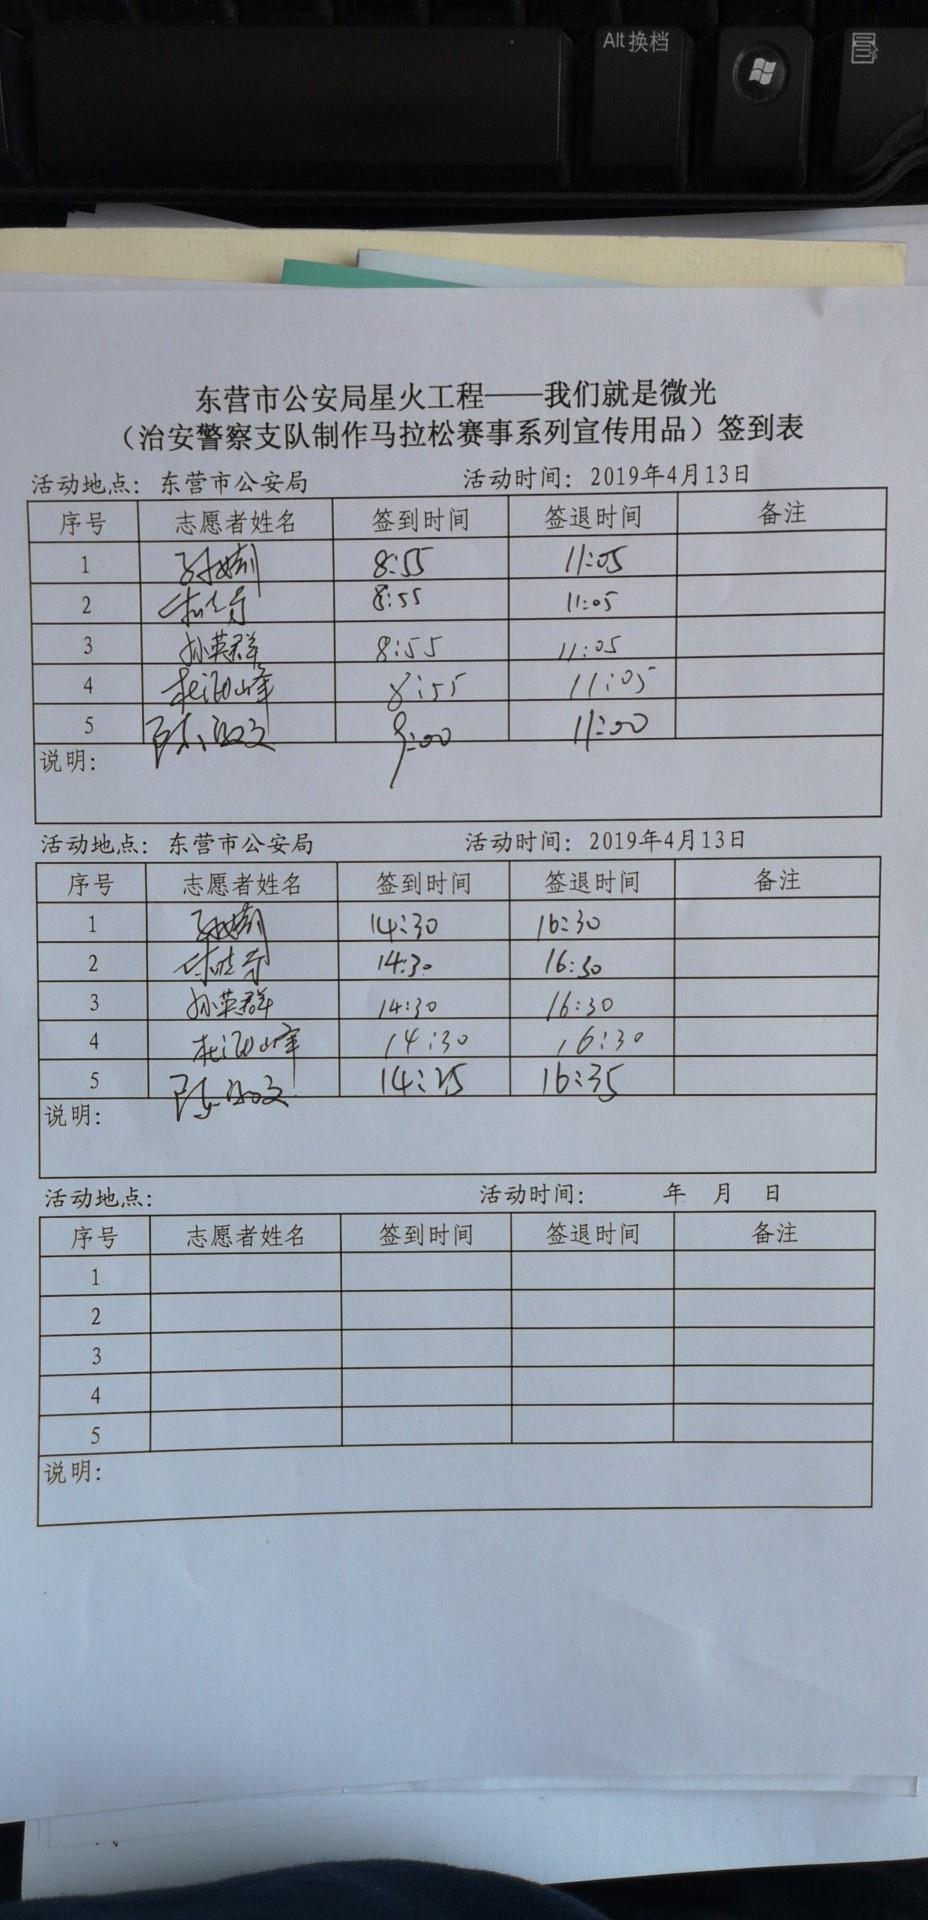 Alt 换档
东营市公安局星火工程——我们就是微光
（治安警察支队制作马拉松赛事系列宣传用品）签到表
活动地点：东营市公安局 活动时间：2019年4月13日
序号 志愿者姓名 签到时间 签退时间 备注
1 8:55 11:05
2 8:55 11:05
3 孙英群 8:55 11:05
4 8:55 11:05
5 9:00 11:00
说明：
活动地点：东营市公安局 活动时间：2019年4月13日
序号 志愿者姓名 签到时间 签退时间 备注
1 14:30 16:30
2 14:30 16:30
3 孙英群 14:30 16:30
4 14:30 16:30
5 14:25 16:35
说明：
活动地点： 活动时间： 年 月 日
序号 志愿者姓名 签到时间 签退时间 备注
1
2
3
4
5
说明：